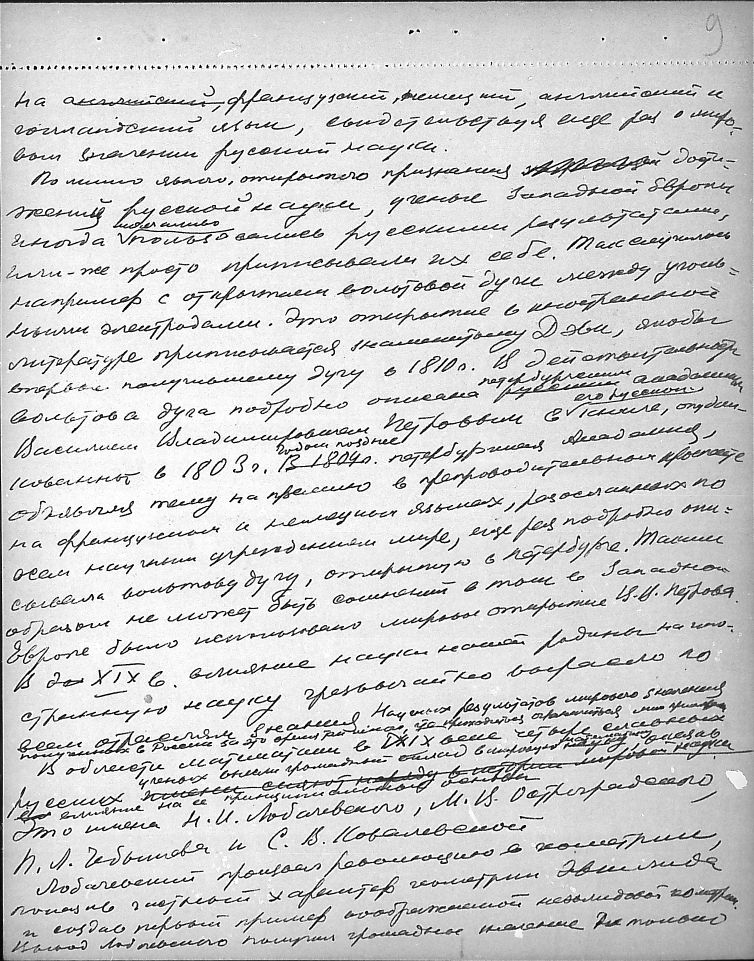 9
на английский, французский, немецкий, английский и
голландский язык, свидетельствуя еще раз о миро-
вом значении русской науки.
Помимо явного, открытого признания дости-
жений русской науки, ученые Западной Европы
молчаливо
иногда пользовались русскими результатами,
или-же просто приписывали их себе. Так случилось
например с открытием вольтовой дуги между уголь-
ными электродами. Это открытие в иностранной
литературе приписывается знаменитому Дэви, якобы
впервые получившему дугу в 1810 г. В действительности
петербургским
вольтова дуга подробно описана русским академиком
его русской
Василием Владимировичем Петровым в книге, опубли-
годом позднее
кованной в 1803 г. В 1804 г. петербургская Академия,
объявляя тему на премию в препроводительном проспекте
на французском и немецком языках, разосланных по
всем научным учреждениям мира, еще раз подробно опи-
сывала вольтову дугу, открытую в Петербурге. Таким
образом не может быть сомнений в том в Западной
Европе было использовано мировое открытие В.В. Петрова.
В XIX в. влияние науки нашей родины на ино-
странную науку чрезвычайно выросло по
всем отраслям знания. Научных результатов мирового значения
полученных в России за это время так много, что приходится ограничиться лишь примерами
В области математики в XIX веке четыре славных
ученых внесли громадный вклад в мировую науку, оказав
русских имени сияют наряду в истории мировой науки
влияние на ее принципиальные основы
Это имена Н.И. Лобачевского, М.В. Остроградского,
П.Л. Чебышева и С.В. Ковалевской
Лобачевский произвел революцию в геометрии,
показав частный характер геометрии Эвклида
и создав первый пример воображаемой неэвклидовой геометрии.
Вывод Лобачевского получил громадное значение не только